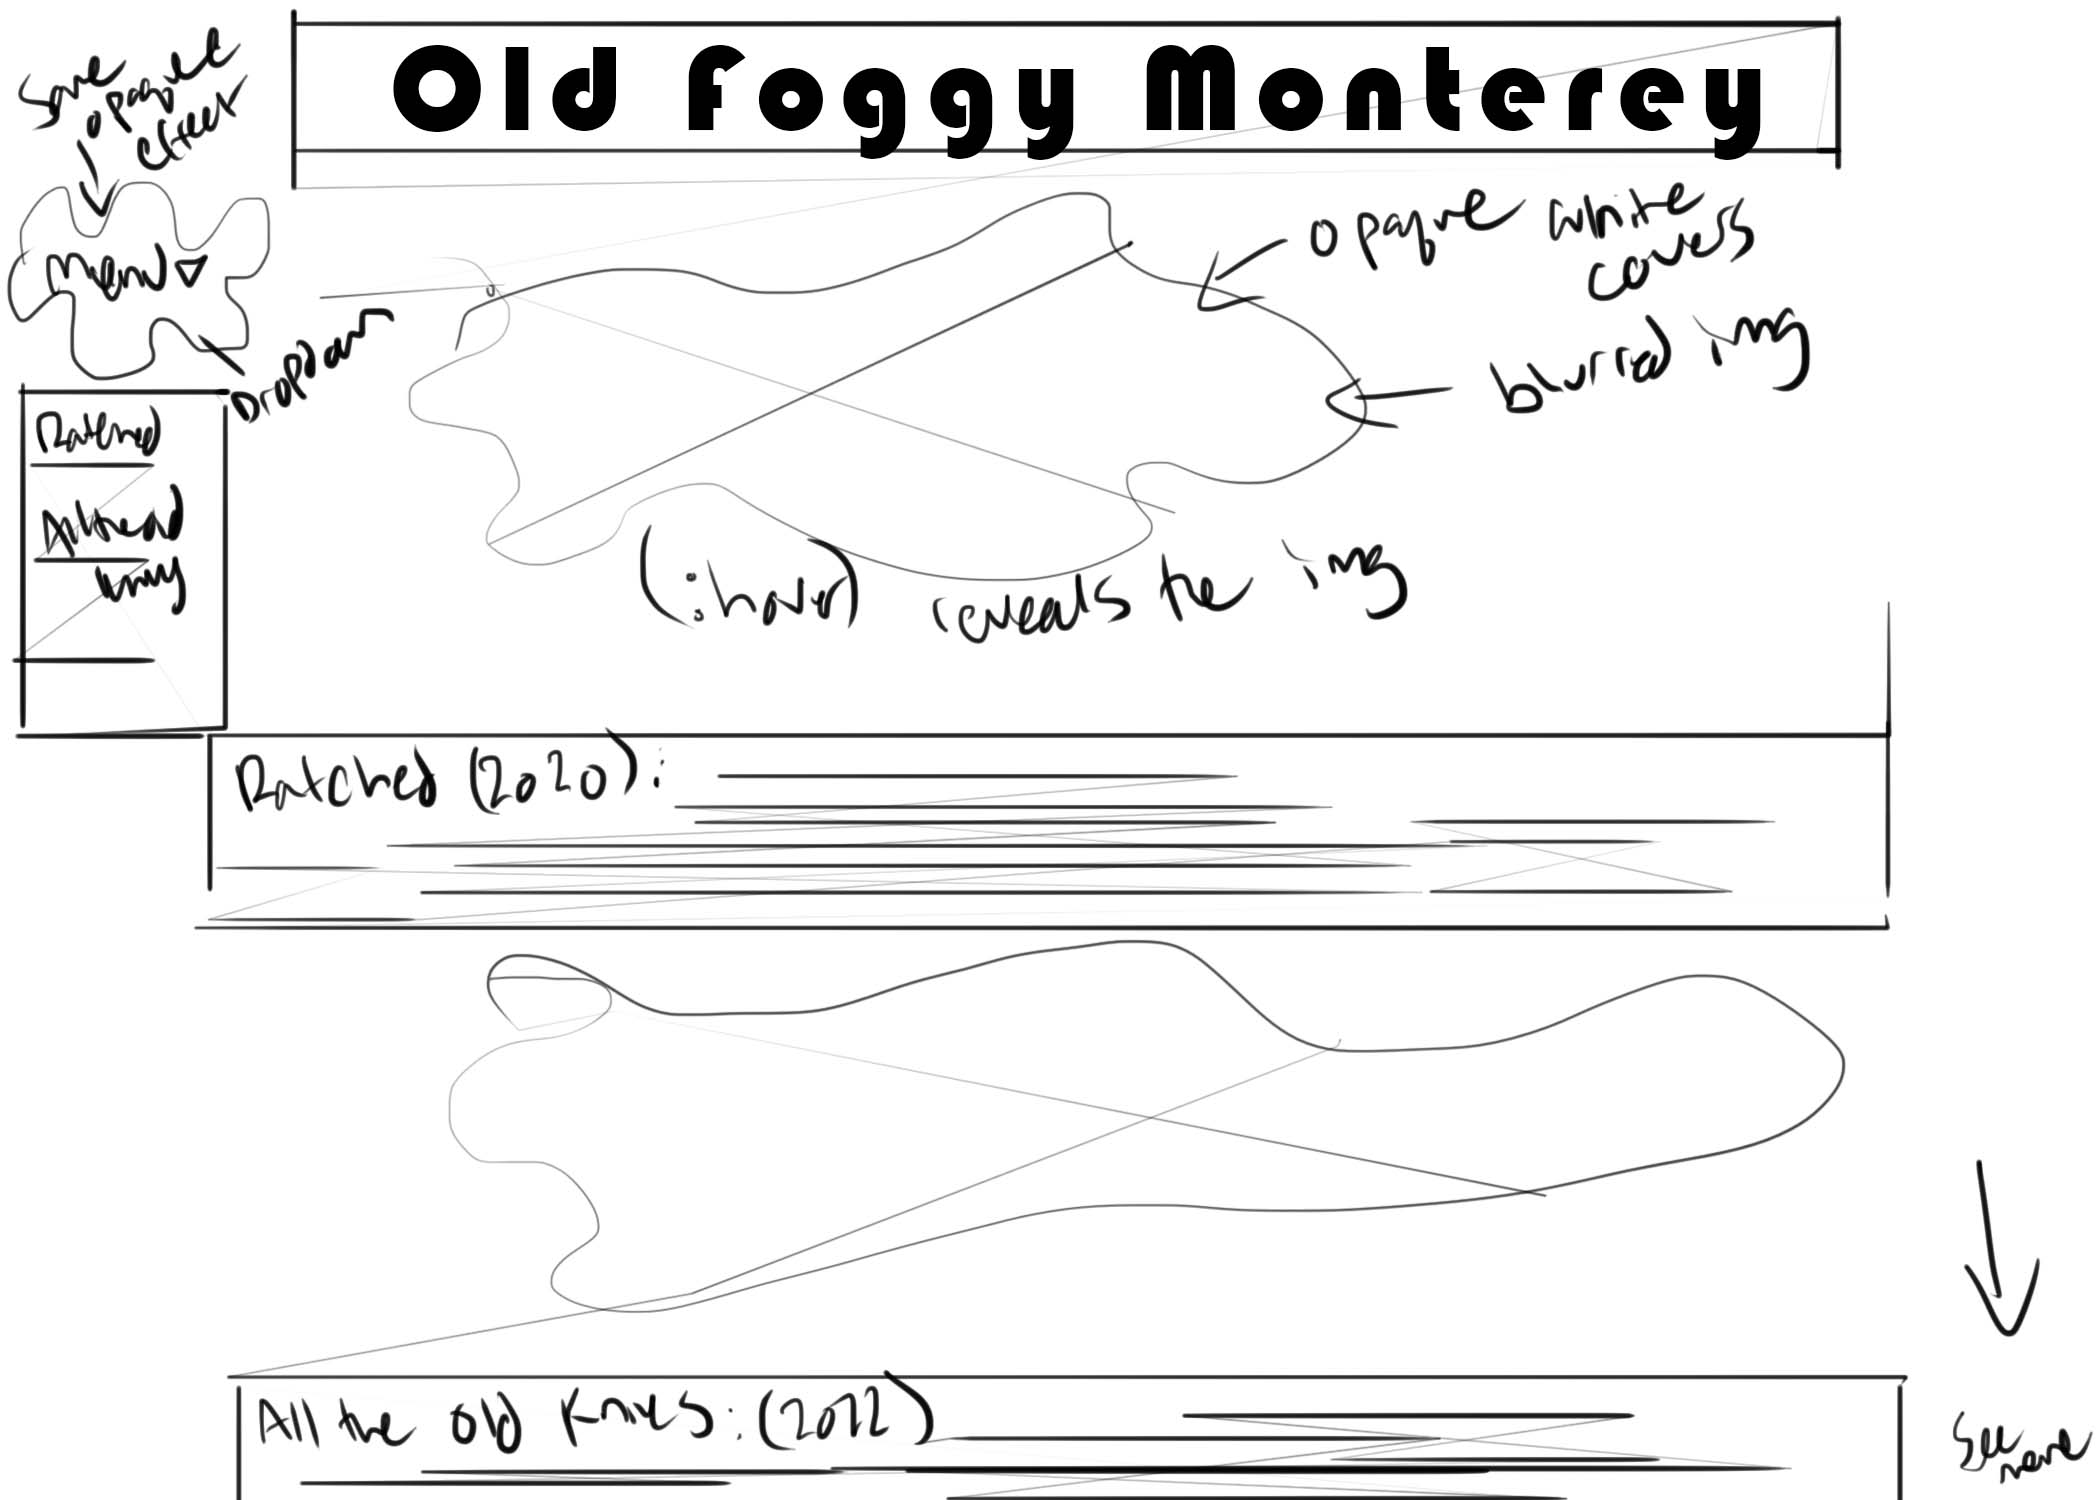 Old Foggy Monterey
Same
opaque
effect
Menu
Dropdown
Ratched
All the old
knives
opaque white
covers
blurred img
(:hover) reveals the img
Ratched (2020):
All the old knives: (2022)
see
more